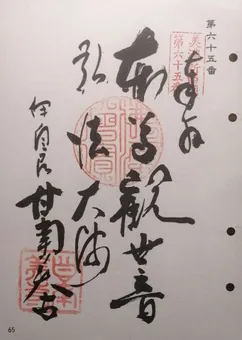 第六十五番
奉拝
第六十五番
本尊
觀世音
弘法大師
伊自良 甘南美寺
65